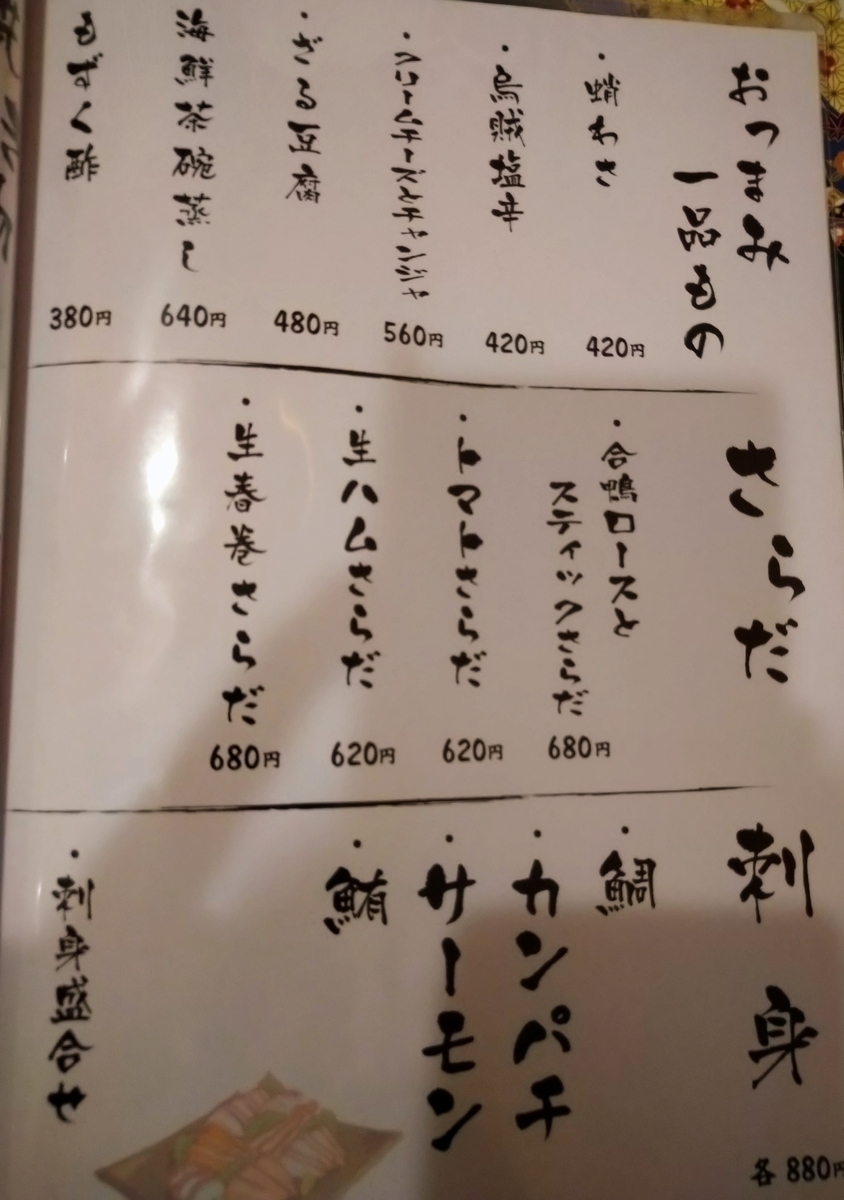 おつまみ
一品もの
・蛸わさ
420円
・烏賊塩辛
420円
・クリームチーズとチャンジャ
560円
・ざる豆腐
480円
海鮮茶碗蒸し
640円
もずく酢
380円
さらだ
・合鴨ロースと
スティックさらだ
680円
・トマトさらだ
620円
・生ハムさらだ
620円
・生春巻さらだ
680円
刺身
各880円
・鯛
・カンパチ
・サーモン
・鮪
・刺身盛合せ